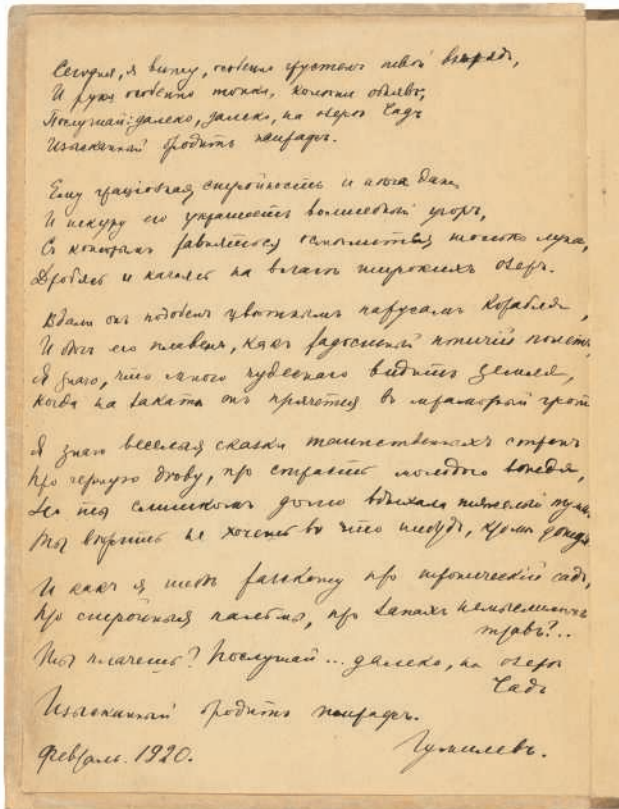 Сегодня, я вижу, особенно грустенъ твой взглядъ,
И руки особенно тонки, колѣни обнявъ,
Послушай: далеко, далеко, на озерѣ Чадъ
Изысканный бродитъ жирафъ.
Ему граціозная стройность и нѣга дана
И шкуру его украшаетъ волшебный узоръ,
Съ которымъ равняться осмѣлится только луна,
Дробясь и качаясь на влагѣ широкихъ озеръ.
Вдали онъ подобенъ цвѣтнымъ парусамъ корабля,
И бѣгъ его плавенъ, какъ радостный птичій полетъ,
Я знаю, что много чудеснаго видитъ земля,
Когда на закатѣ онъ прячется въ мраморный гротъ
Я знаю веселыя сказки таинственныхъ странъ
Про черную дѣву, про страсть молодого вождя,
Но ты слишкомъ долго вдыхала тяжелый туманъ
Ты вѣрить не хочешь во что нибудь, кромѣ дождя
И какъ я тебѣ разскажу про тропическій садъ,
Про стройныя пальмы, про запахъ немыслимыхъ
травъ?..
Ты плачешь? Послушай... далеко, на озерѣ
Чадъ
Изысканный бродитъ жирафъ.
Февраль. 1920. Гумилевъ.